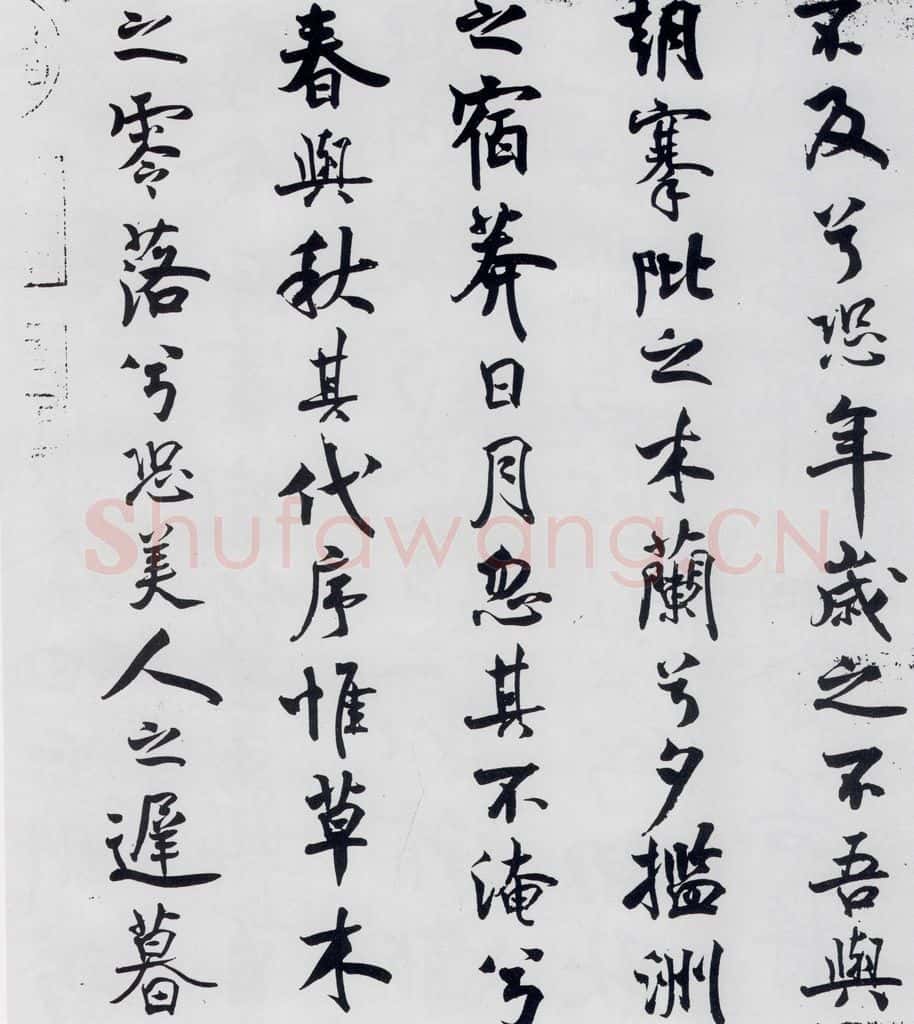 不及兮恐年歲之不吾與
朝搴阰之木蘭兮夕擥洲
之宿莽日月忽其不淹兮
春與秋其代序惟草木
之零落兮恐美人之遲暮
Shufawang.CN